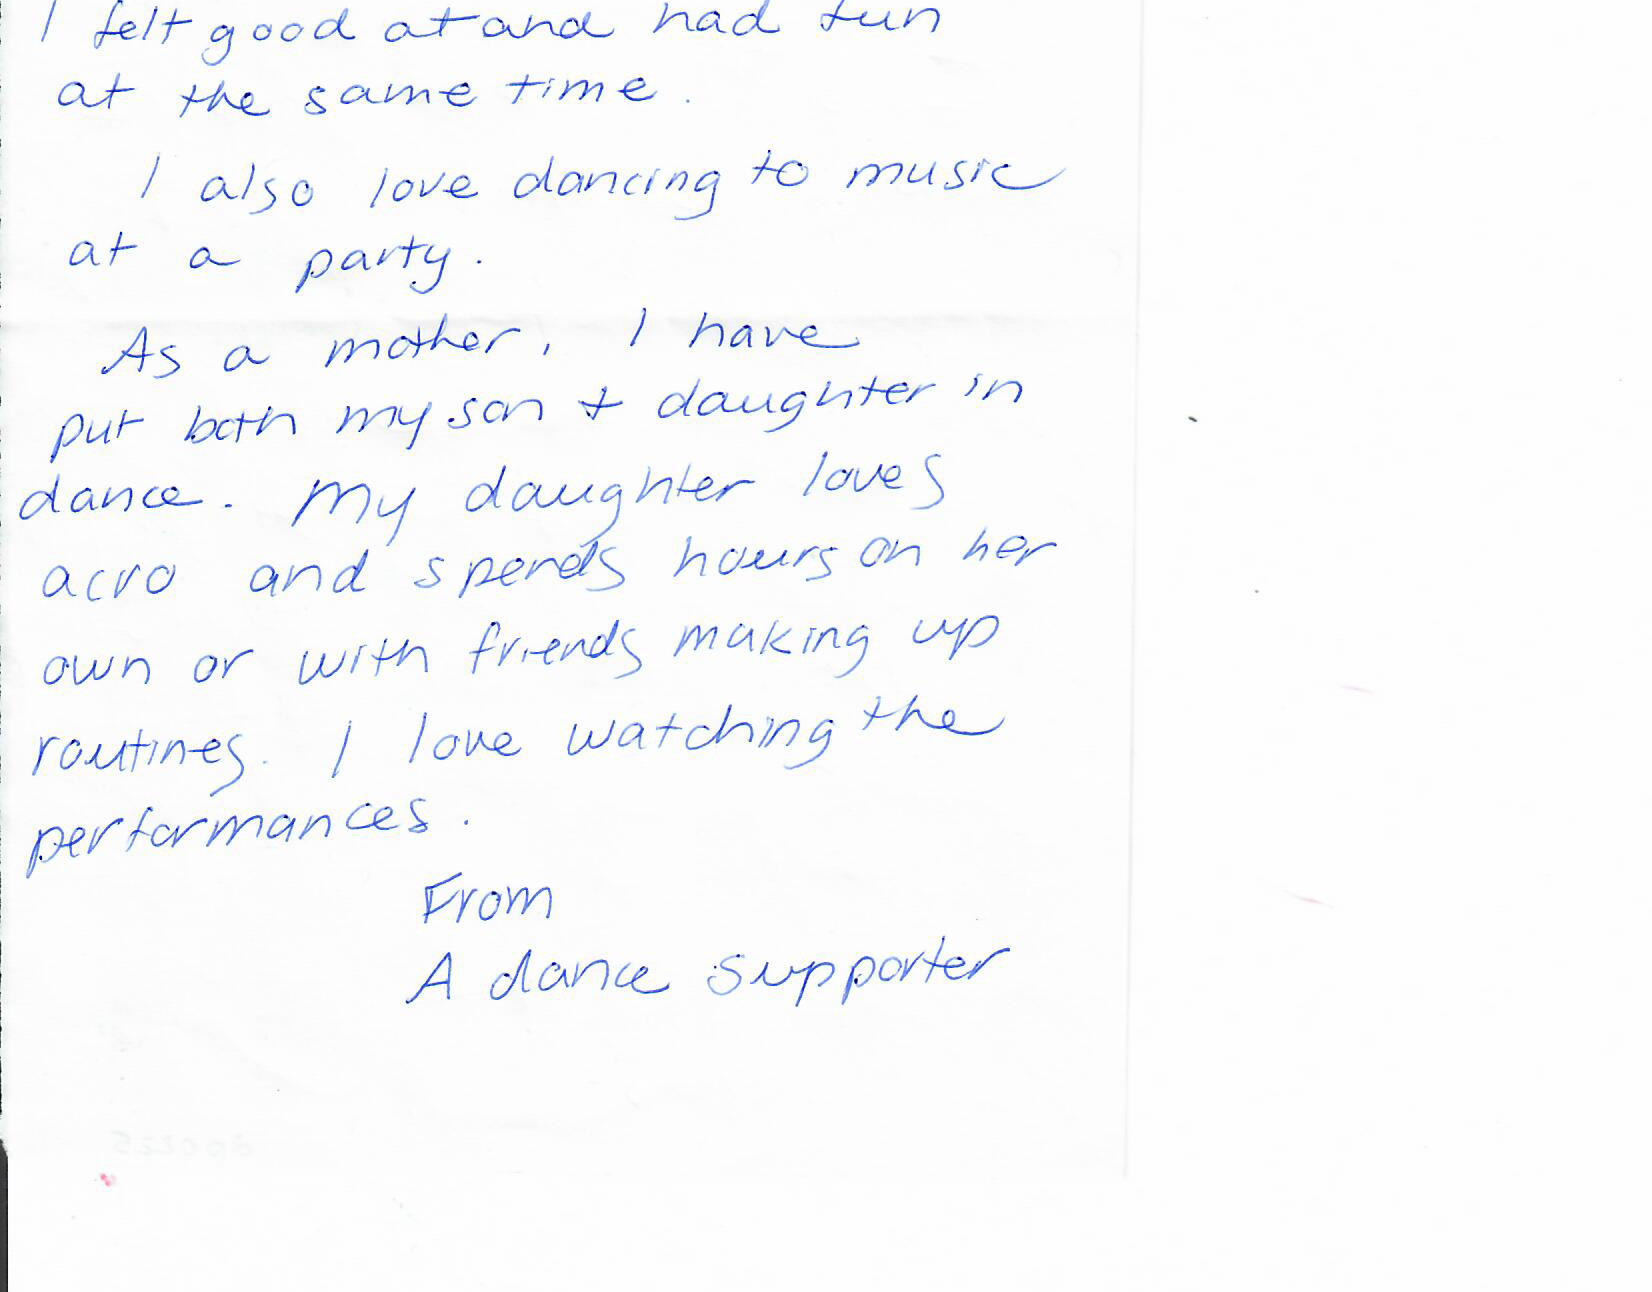 I felt good at and had fun
at the same time.
I also love dancing to music
at a party.
As a mother, I have
put both my son + daughter in
dance. My daughter loves
acro and spends hours on her
own or with friends making up
routines. I love watching the
performances.
From
A dance supporter